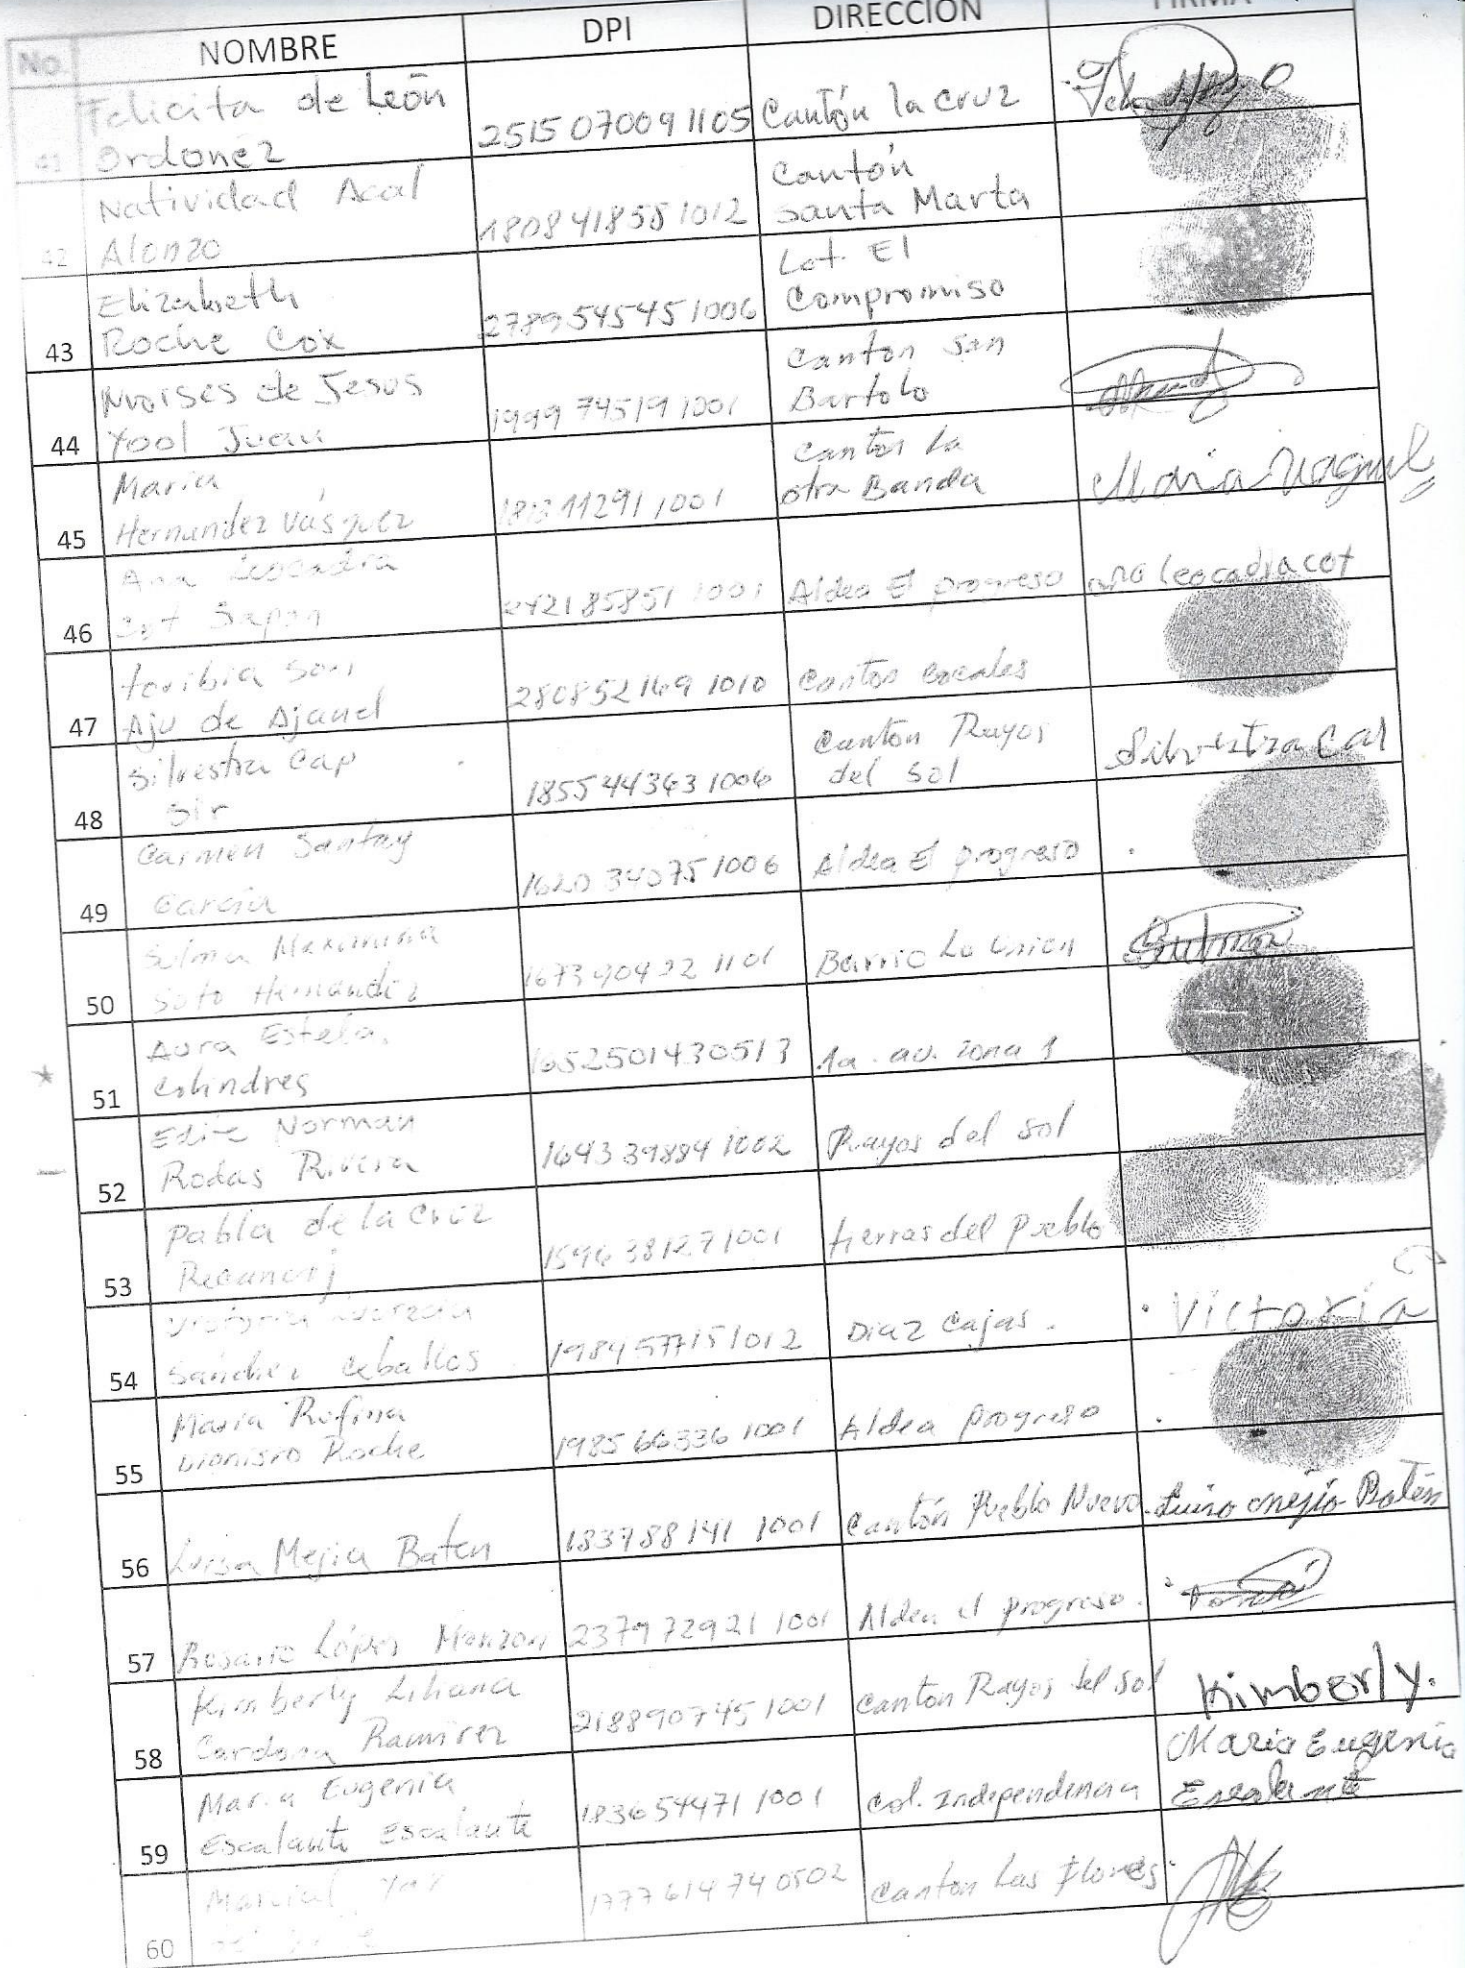 No. NOMBRE DPI DIRECCIÓN FIRMA
Felicita de León
41 Ordoñez 2515 07009 1105 Cantón la cruz
Natividad Acal Cantón
42 Alonzo 1808 41855 1012 Santa Marta
Elizabeth Lot. El
43 Roche Cox 2789 54545 1006 Compromiso
Moises de Jesus Canton San
44 Yool Juan 1999 74519 1001 Bartolo
Maria Canton La
45 Hernandez Vásquez 11291 1001 otra Banda Maria
Ana Leocadia
46 Cot Sapon 2421 85851 1001 Aldea El progreso ana leocadia cot
toribia Son
47 Aju de Ajanel 2808 52169 1010 Canton Cocales
Silvestra Cap Canton Rayos
48 Sir 1855 44363 1006 del Sol Silvestra Cap
Carmen Santay
49 Garcia 1620 34075 1006 Aldea El progreso
Maximina
50 Soto Hernandez 1673 90422 1101 Barrio La Union
Aura Estela
51 Colindres 1652501430513 1a. av. zona 1
Norman
52 Rodas Rivera 1643 39884 1002 Rayos del Sol
Pabla de la Cruz
53 1596 38127 1001 tierras del Pueblo
54 Sanchez Ceballos 1984 57715 1012 Diaz Cajas. Victoria
Maria Rufina
55 Dionisio Roche 1985 66336 1001 Aldea progreso
56 Luisa Mejia Baten 1837 88141 1001 Cantón Pueblo Nuevo Luisa mejia Baten
57 Rosario López Monzon 2379 72921 1001 Aldea el progreso.
Kimberly Liliana
58 Cardona Ramirez 2188 90745 1001 Canton Rayos del Sol Kimberly.
Maria Eugenia Maria Eugenia
59 Escalante Escalante 1836 54471 1001 Col. Independencia Escalante
Marcial
60 1777 61474 0502 Canton Las Flores